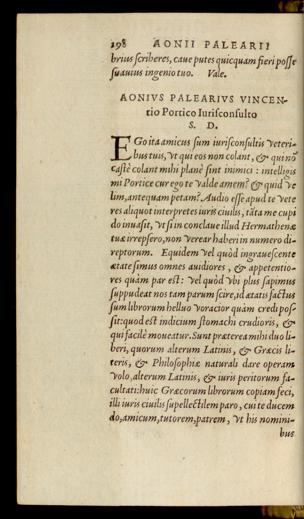 198 AONII PALEARII
brius ſcriberes, caue putes quicquam fieri poſſe
ſuauius ingenio tuo. Vale.
AONIVS PALEARIVS VINCEN-
tio Portico Iuriſconſulto
S. D.
EGo ita amicus ſum iuriſconſultis veteri-
bus tuis, vt qui eos non colant, & qui nō
caſtè colant mihi planè ſint inimici: intelligis
mi Portice cur ego te valde amem? & quid ve
lim, antequam petam? Audio eſſe apud te vete
res aliquot interpretes iuris ciuilis, tāta me cupi
do inuaſit, vt ſi in conclaue illud Hermathenæ
tuæ irrepſero, non verear haberi in numero di-
reptorum. Equidem vel quòd ingraueſcente
ætate ſimus omnes auidiores, & appetentio-
res quàm par eſt: vel quòd vbi plus ſapimus
ſuppudeat nos tam parum ſcire, id ætatis factus
ſum librorum helluo voracior quàm credi poſ-
ſit: quod eſt indicium ſtomachi crudioris, &
qui facilè moueatur. Sunt præterea mihi duo li-
beri, quorum alterum Latinis, & Græcis li-
teris, & Philoſophiæ naturali dare operam
volo, alterum Latinis, & iuris peritorum fa-
cultati: huic Græcorum librorum copiam feci,
illi iuris ciuilis ſupellectilem paro, cui te ducem
do, amicum, tutorem, patrem, vt his nomini-
bus